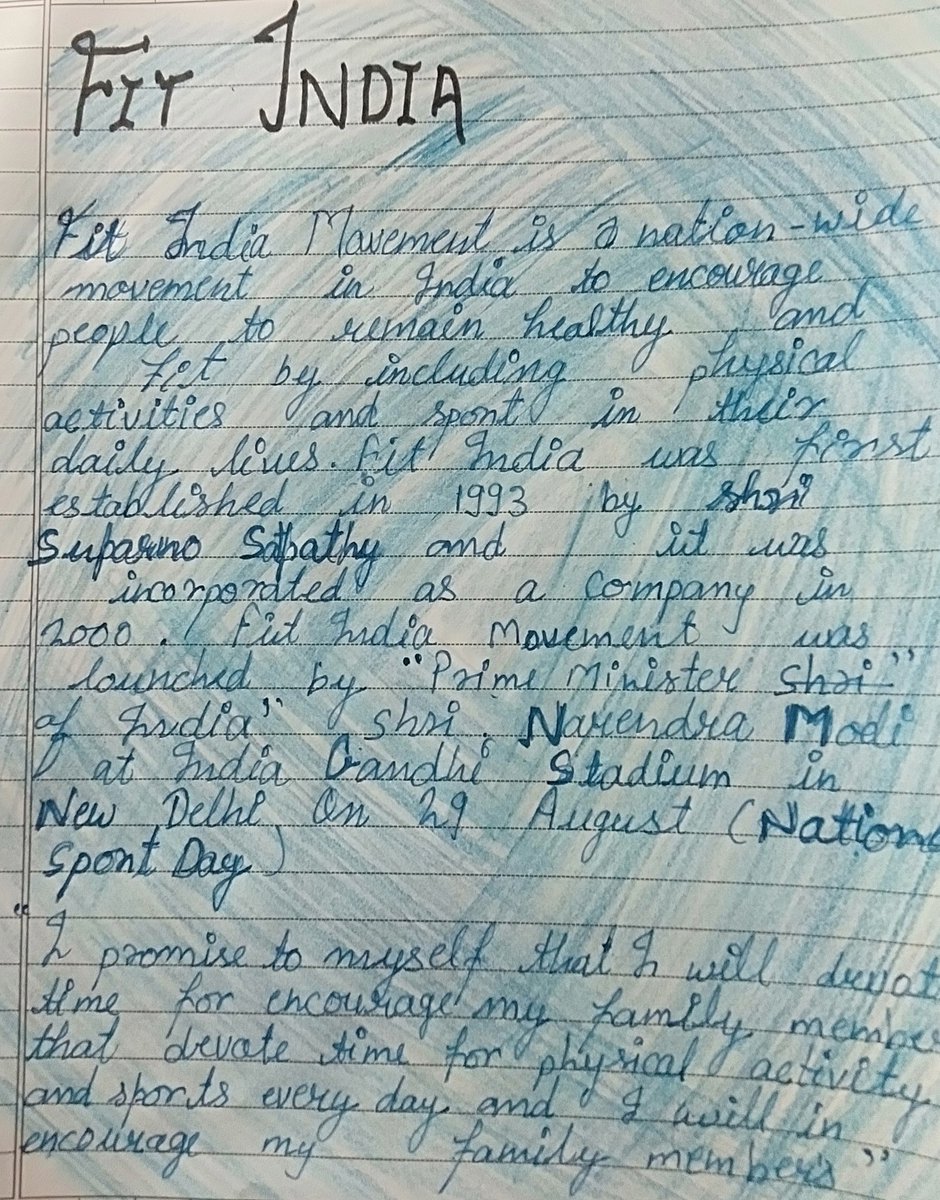 FIT INDIA
Fit India Movement is a nation-wide
movement in India to encourage
people to remain healthy and
fit by including physical
activities and sport in their
daily lives. Fit India was first
established in 1993 by shri
Suparno Satpathy and it was
incorporated as a company in
2000. Fit India Movement was
launched by "Prime Minister Shri"
of India" shri. Narendra Modi
at India Gandhi Stadium in
New Delhi On 29 August (Nationa
Sport Day)
"I promise to myself that I will devot
time for encourage my family membe
that devate time for physical activity
and sports every day and I will in
encourage my family members"